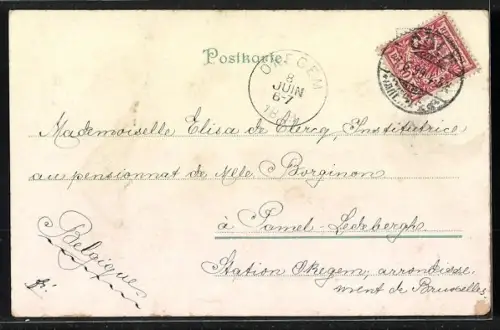 Postkarte
OKEGEM
8
JUIN
6-7
Mademoiselle Elisa de Clercq, Institutrice
au pensionnat de Melle Borginon
à Pamel-Ledebergh
Station Okegem, arrondisse
ment de Bruxelles
Belgique